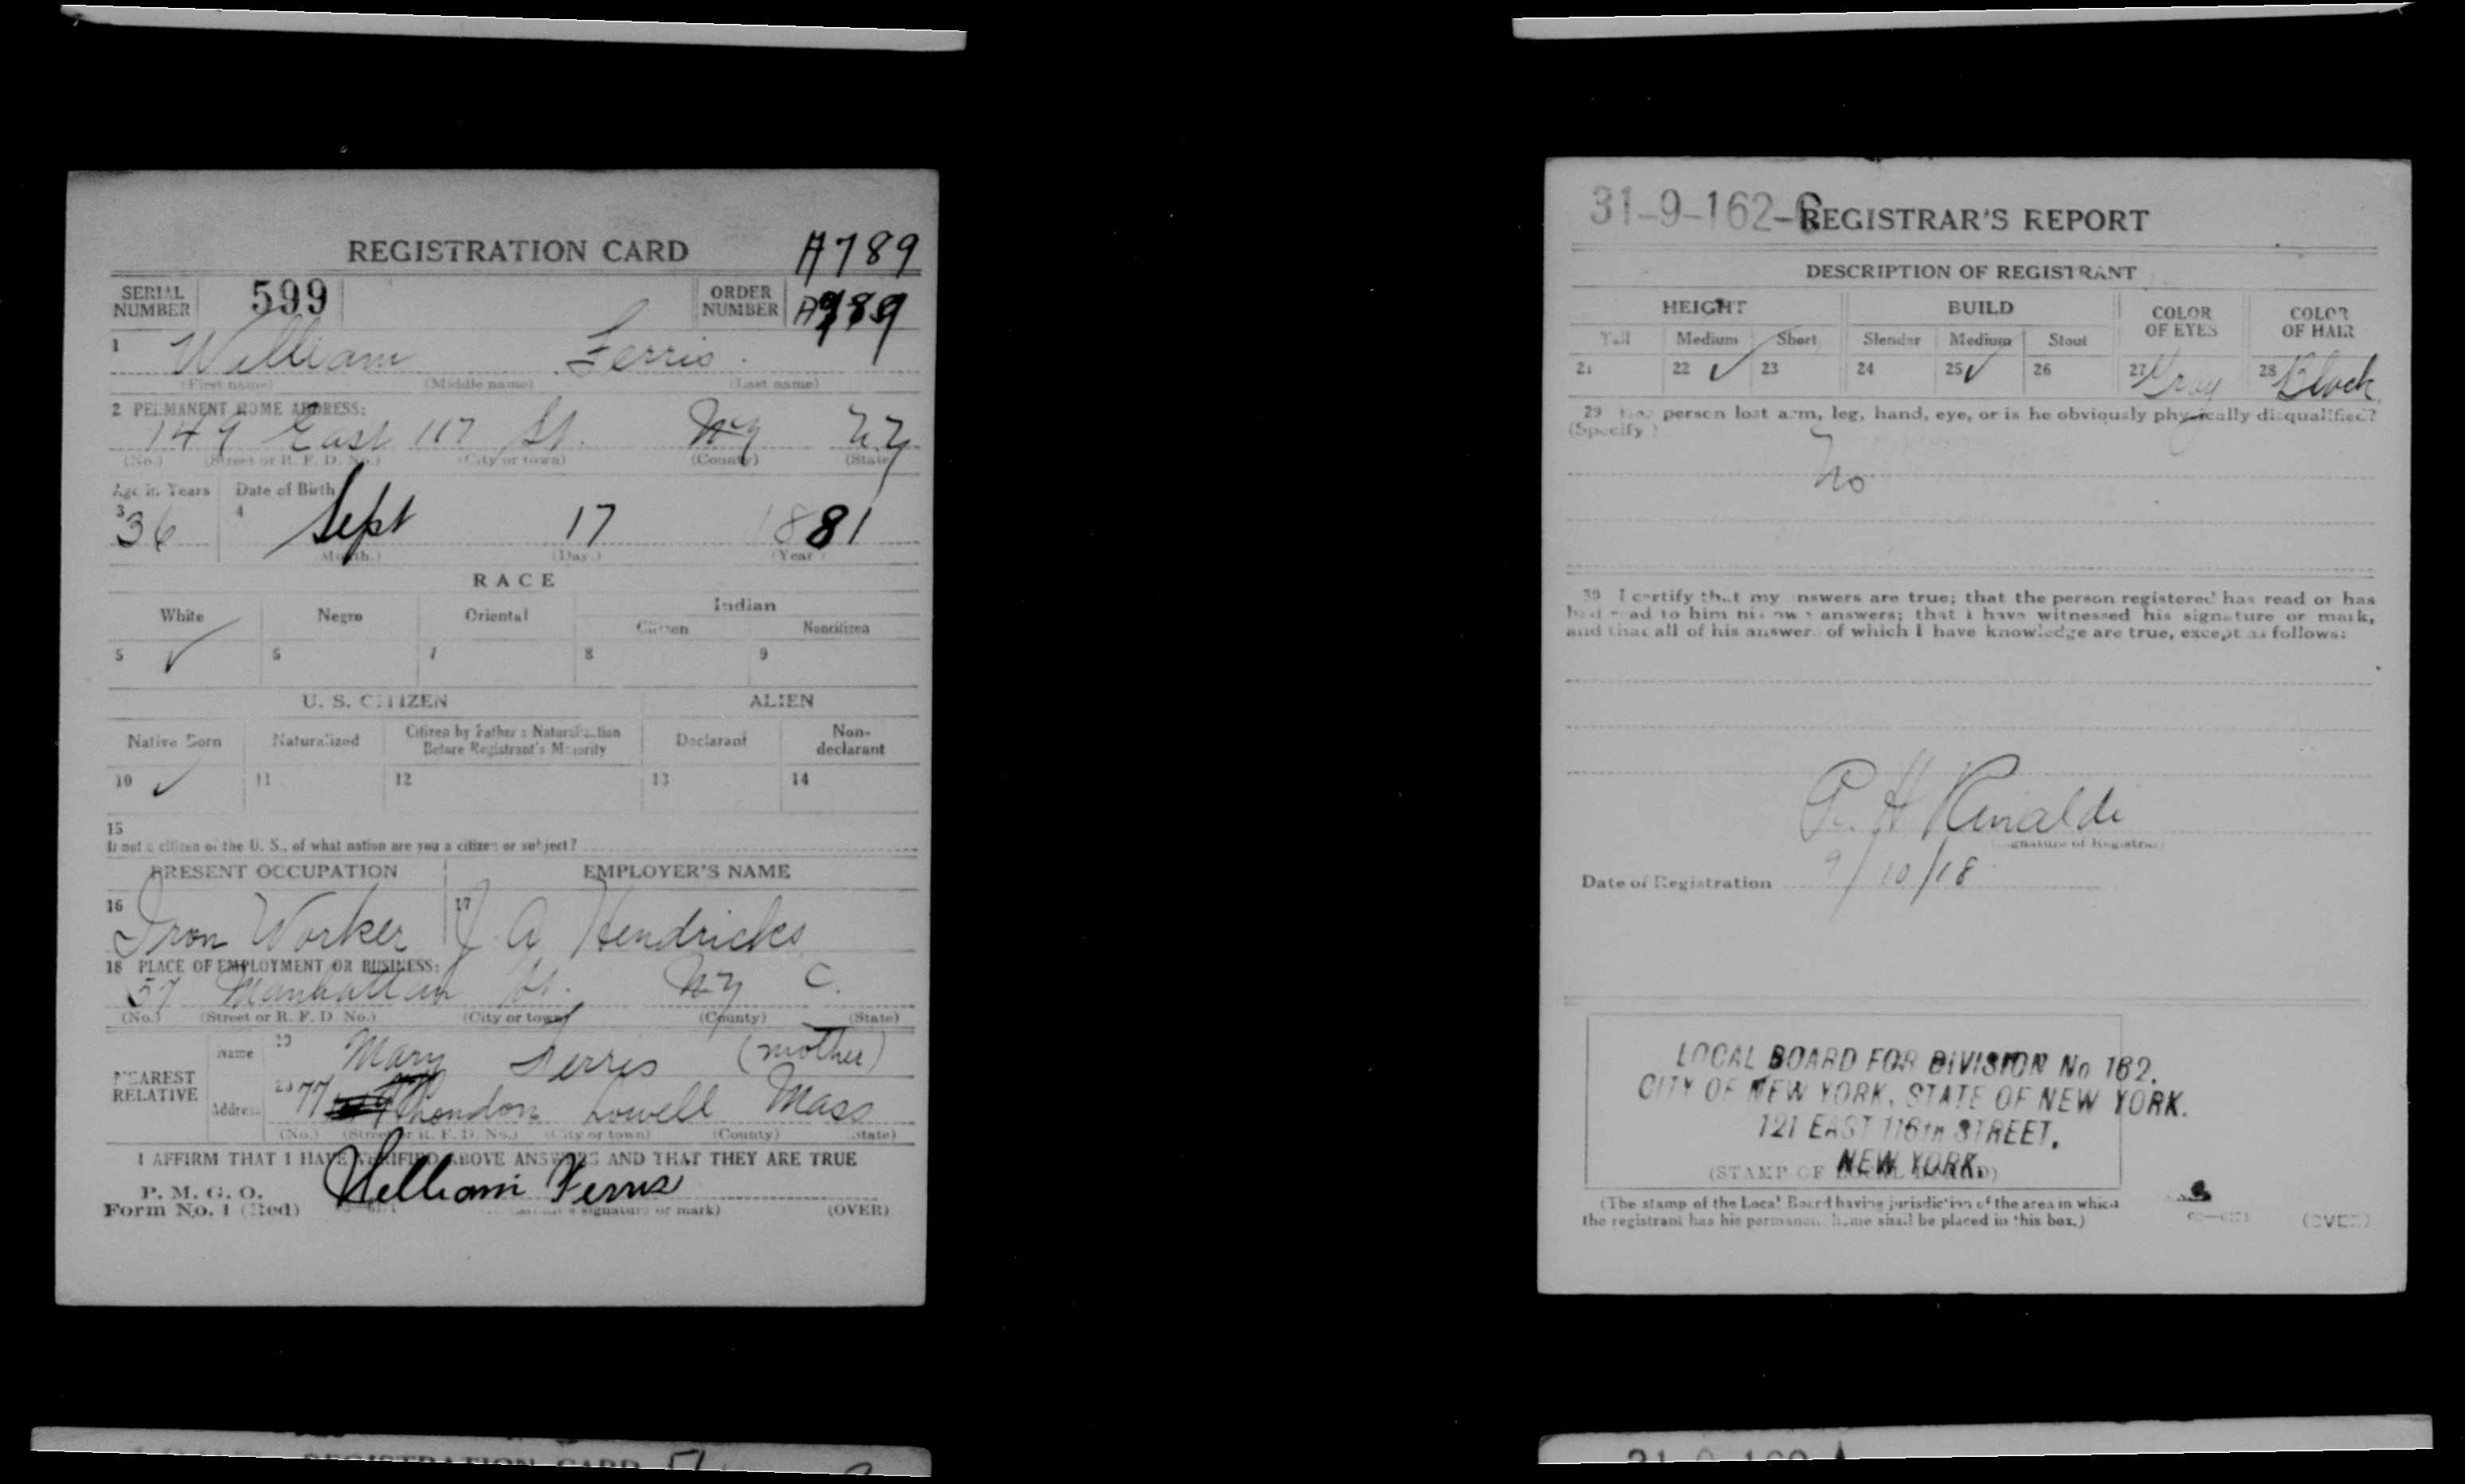 REGISTRATION CARD A789
SERIAL NUMBER 599 ORDER NUMBER
1 William Ferris
(First name) (Middle name) (Last name)
2 PERMANENT HOME ADDRESS:
149 East 117 St. NY NY
(No.) (Street or R. F. D. No.) (City or town) (County) (State)
Age in Years Date of Birth
3 36 4 Sept 17 1881
(Month.) (Day.) (Year)
RACE
White Negro Oriental Indian
Citizen Noncitizen
5 ✓ 6 7 8 9
U. S. CITIZEN ALIEN
Native Born Naturalized Citizen by Father's Naturalization Before Registrant's Majority Declarant Non-declarant
10 ✓ 11 12 13 14
15
If not a citizen of the U. S., of what nation are you a citizen or subject?
PRESENT OCCUPATION EMPLOYER'S NAME
16 Iron Worker 17 J. A Hendricks
18 PLACE OF EMPLOYMENT OR BUSINESS:
57 Manhattan St. NY C.
(No.) (Street or R. F. D. No.) (City or town) (County) (State)
NEAREST RELATIVE Name 19 Mary Ferris (mother)
Address 20 77 Lowell Mass
(No.) (Street or R. F. D. No.) (City or town) (County) (State)
I AFFIRM THAT I HAVE VERIFIED ABOVE ANSWERS AND THAT THEY ARE TRUE
P. M. G. O.
Form No. 1 (Red) William Ferris
(Registrant's signature or mark) (OVER)
31-9-162-C REGISTRAR'S REPORT
DESCRIPTION OF REGISTRANT
HEIGHT BUILD COLOR OF EYES COLOR OF HAIR
Tall Medium Short Slender Medium Stout
21 22 ✓ 23 24 25 ✓ 26 27 Gray 28 Black
29 Has person lost arm, leg, hand, eye, or is he obviously physically disqualified?
(Specify.)
No
30 I certify that my answers are true; that the person registered has read or has
had read to him his own answers; that I have witnessed his signature or mark,
and that all of his answers of which I have knowledge are true, except as follows:
H Rinaldi
(Signature of Registrar)
Date of Registration 9/10/18
LOCAL BOARD FOR DIVISION No 162.
CITY OF NEW YORK, STATE OF NEW YORK.
121 EAST 116th STREET,
NEW YORK.
(STAMP OF LOCAL BOARD)
(The stamp of the Local Board having jurisdiction of the area in which
the registrant has his permanent home shall be placed in this box.)
(OVER)
REGISTRATION CARD